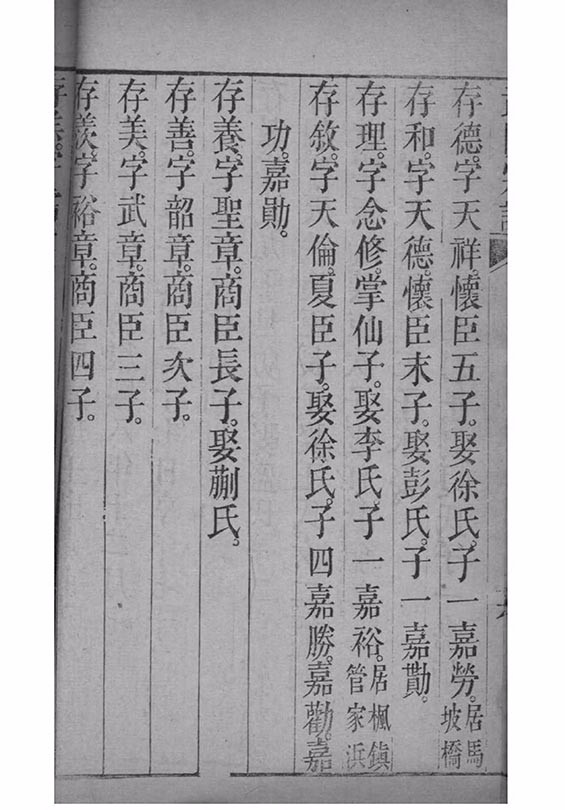 存德。字天祥。懷臣五子。娶徐氏。子一嘉勞。居馬坡橋
存和。字天德。懷臣末子。娶彭氏。子一嘉勩。
存理。字念修。掌仙子。娶李氏。子一嘉裕。居楓鎮管家浜
存敘。字天倫。夏臣子。娶徐氏。子四嘉勝。嘉勸。嘉
功。嘉勛。
存養。字聖章。商臣長子。娶蒯氏。
存善。字韶章。商臣次子。
存美。字武章。商臣三子。
存羨。字裕章。商臣四子。